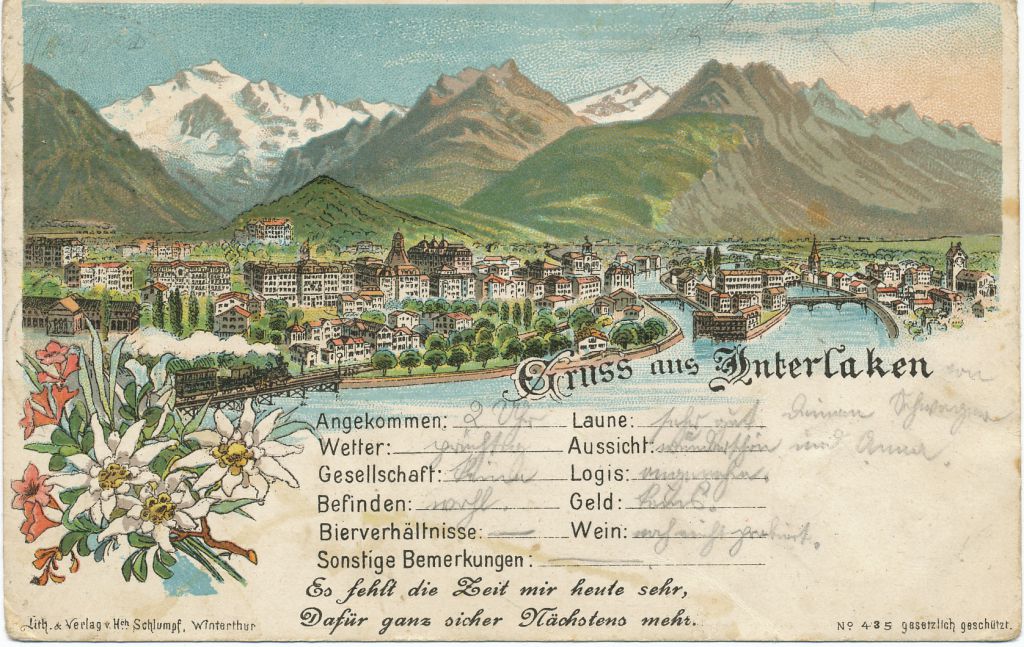 Gruss aus Interlaken
Angekommen: 2 Uhr Laune: sehr gut
Wetter: prächtig Aussicht: wunderschön und Anna.
Gesellschaft: keine Logis: angenehm.
Befinden: wohl. Geld:
Bierverhältnisse: — Wein: noch nicht probiert.
Sonstige Bemerkungen: —
Es fehlt die Zeit mir heute sehr,
Dafür ganz sicher Nächstens mehr.
Lith. & Verlag v. Hch Schlumpf, Winterthur
No 435 gesetzlich geschützt.